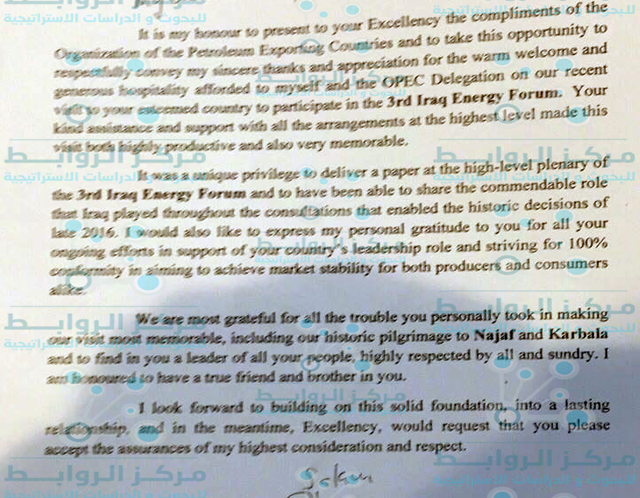 It is my honour to present to your Excellency the compliments of the
Organization of the Petroleum Exporting Countries and to take this opportunity to
respectfully convey my sincere thanks and appreciation for the warm welcome and
generous hospitality afforded to myself and the OPEC Delegation on our recent
visit to your esteemed country to participate in the 3rd Iraq Energy Forum. Your
kind assistance and support with all the arrangements at the highest level made this
visit both highly productive and also very memorable.
It was a unique privilege to deliver a paper at the high-level plenary of
the 3rd Iraq Energy Forum and to have been able to share the commendable role
that Iraq played throughout the consultations that enabled the historic decisions of
late 2016. I would also like to express my personal gratitude to you for all your
ongoing efforts in support of your country's leadership role and striving for 100%
conformity in aiming to achieve market stability for both producers and consumers
alike.
We are most grateful for all the trouble you personally took in making
our visit most memorable, including our historic pilgrimage to Najaf and Karbala
and to find in you a leader of all your people, highly respected by all and sundry. I
am honoured to have a true friend and brother in you.
I look forward to building on this solid foundation, into a lasting
relationship, and in the meantime, Excellency, would request that you please
accept the assurances of my highest consideration and respect.
مركز الروابط
للبحوث و الدراسات الاستراتيجية